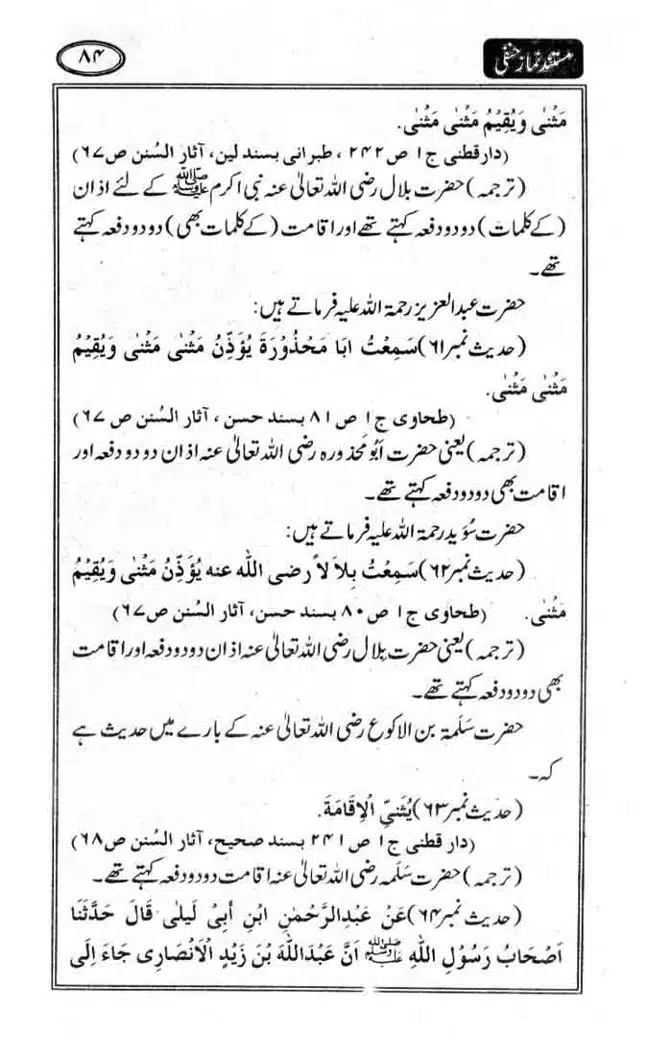 مستند نماز حنفی
۸۴
مَثْنٰی وَیُقِیْمُ مَثْنٰی مَثْنٰی.
(دار قطنی ج۱ ص ۲۴۲ ، طبرانی بسند لین، آثار السُنن ص۶۷)
(ترجمہ) حضرت بلال رضی اللہ تعالیٰ عنہ نبی اکرم ﷺ کے لئے اذان
(کے کلمات) دو دو دفعہ کہتے تھے اور اقامت (کے کلمات بھی) دو دو دفعہ کہتے
تھے۔
حضرت عبدالعزیز رحمۃ اللہ علیہ فرماتے ہیں:
(حدیث نمبر۶۱) سَمِعْتُ ابَا مَحْذُوْرَةَ یُؤَذِّنُ مَثْنٰی مَثْنٰی وَیُقِیْمُ
مَثْنٰی مَثْنٰی.
(طحاوی ج۱ ص ۸۱ بسند حسن ، آثار السُنن ص ۶۷)
(ترجمہ) یعنی حضرت ابُو محذورہ رضی اللہ تعالیٰ عنہ اذان دو دو دفعہ اور
اقامت بھی دو دو دفعہ کہتے تھے۔
حضرت سُوَید رحمۃ اللہ علیہ فرماتے ہیں:
(حدیث نمبر۶۲) سَمِعْتُ بِلاَ لاً رضی الله عنه یُؤَذِّنُ مَثْنٰی وَیُقِیْمُ
مَثْنٰی. (طحاوی ج۱ ص۸۰ بسند حسن، آثار السُنن ص۶۷)
(ترجمہ) یعنی حضرت بِلال رضی اللہ تعالیٰ عنہ اذان دو دو دفعہ اور اقامت
بھی دو دو دفعہ کہتے تھے۔
حضرت سَلَمۃ بن الاکوع رضی اللہ تعالیٰ عنہ کے بارے میں حدیث ہے
کہ۔
(حدیث نمبر۶۳) یُثَنیِّ الْاِقَامَةَ.
(دار قطنی ج۱ ص ۲۴۱ بسند صحیح، آثار السُنن ص۶۸)
(ترجمہ) حضرت سَلَمہ رضی اللہ تعالیٰ عنہ اقامت دو دو دفعہ کہتے تھے۔
(حدیث نمبر۶۴) عَنْ عَبْدِالرَّحْمٰنِ ابْنِ أَبِیْ لَیلٰی قَالَ حَدَّثَنَا
اَصْحَابُ رَسُوْلِ اللهِ ﷺ اَنَّ عَبْدَاللهَ بْنَ زَیْدٍ الْاَنْصَارِی جَاءَ اِلَی